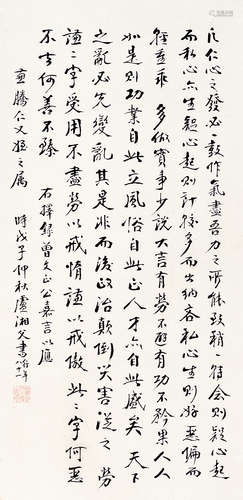 凡仁心之發必一鼓作氣盡吾力之所能稍一則疑心起
而私心亦生疑心起則計較多而出納吝私心生則好惡偏而
輕重乖 多做實事少說大言有勞不避有功不矜果人人
如是則功業自此立風俗自此正人才亦自此盛矣 天下
之亂必先變亂其是非而後政治顛倒災害從之 勞
謙二字受用不盡勞以戒惰謙以戒傲此二字何惡
不去何善不臻 右擇錄曾文正公嘉言以應
騰仁之屬 時戊子仲秋盧湘父書